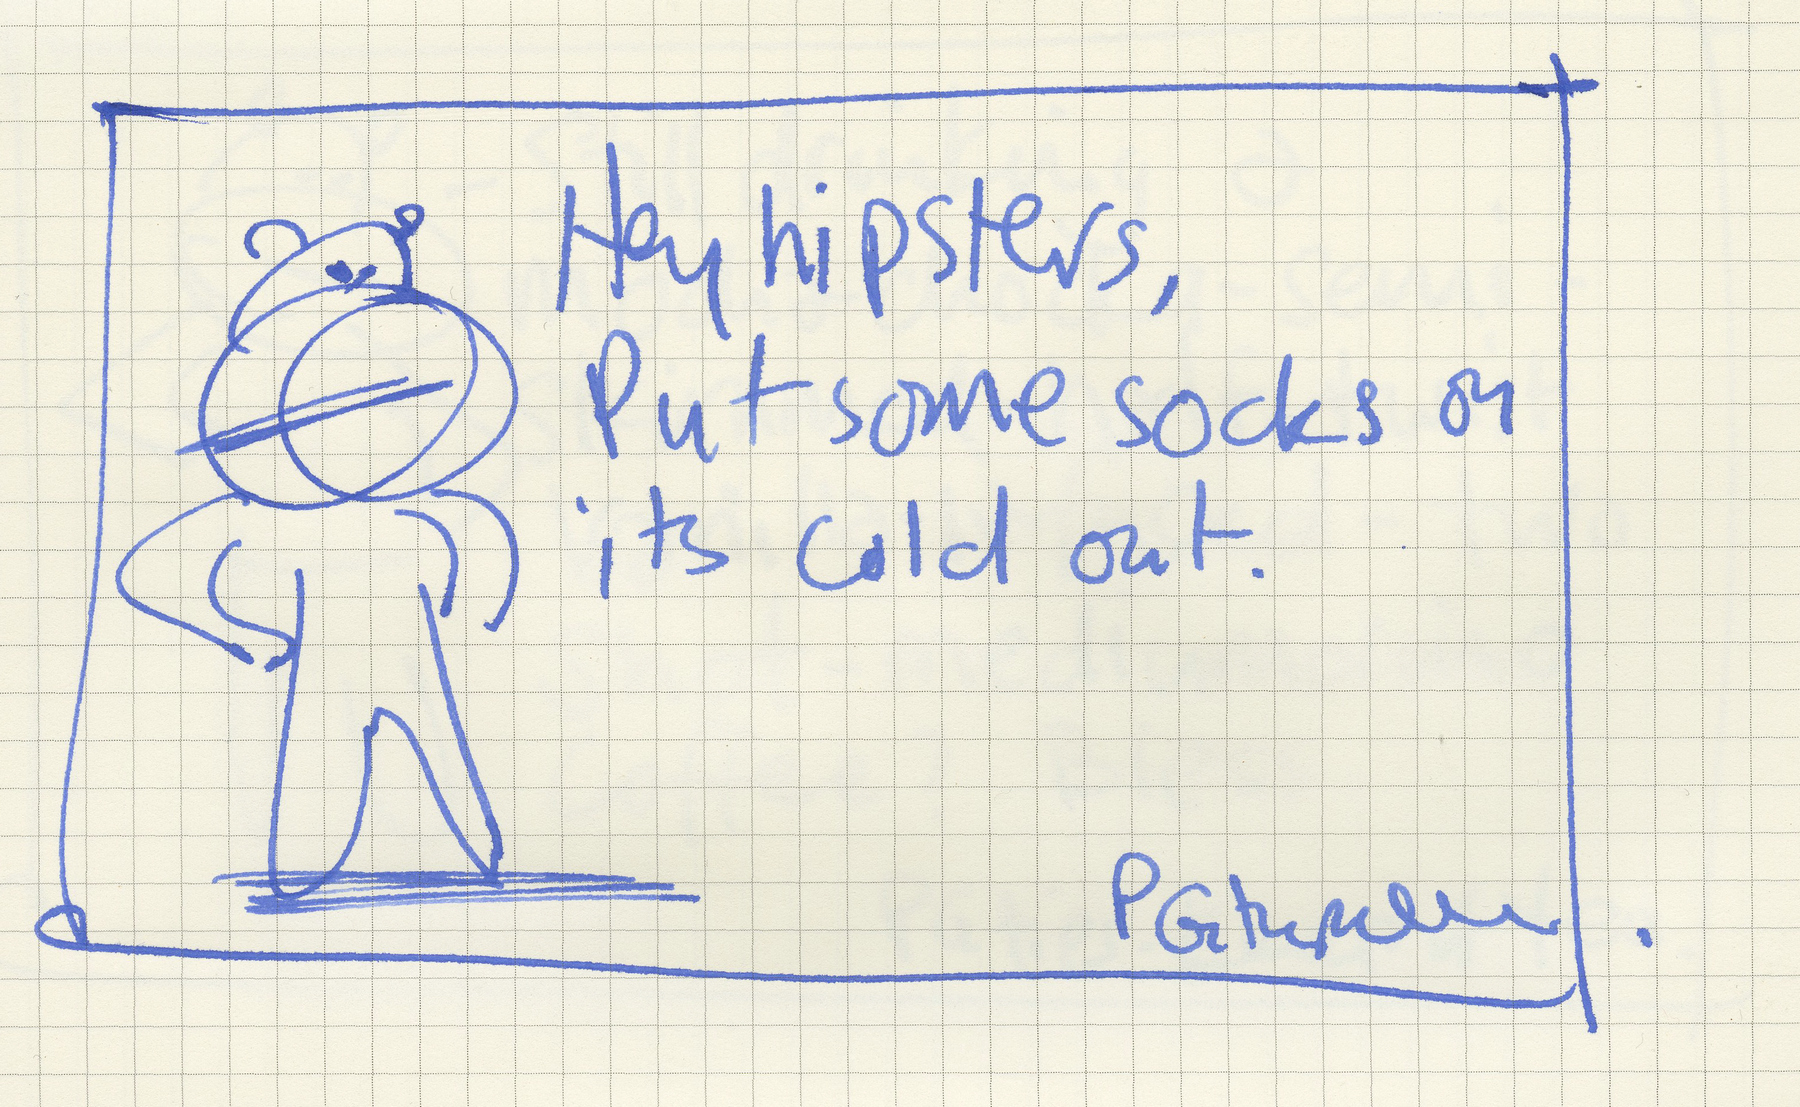 Hey hipsters,
Put some socks on
its cold out.